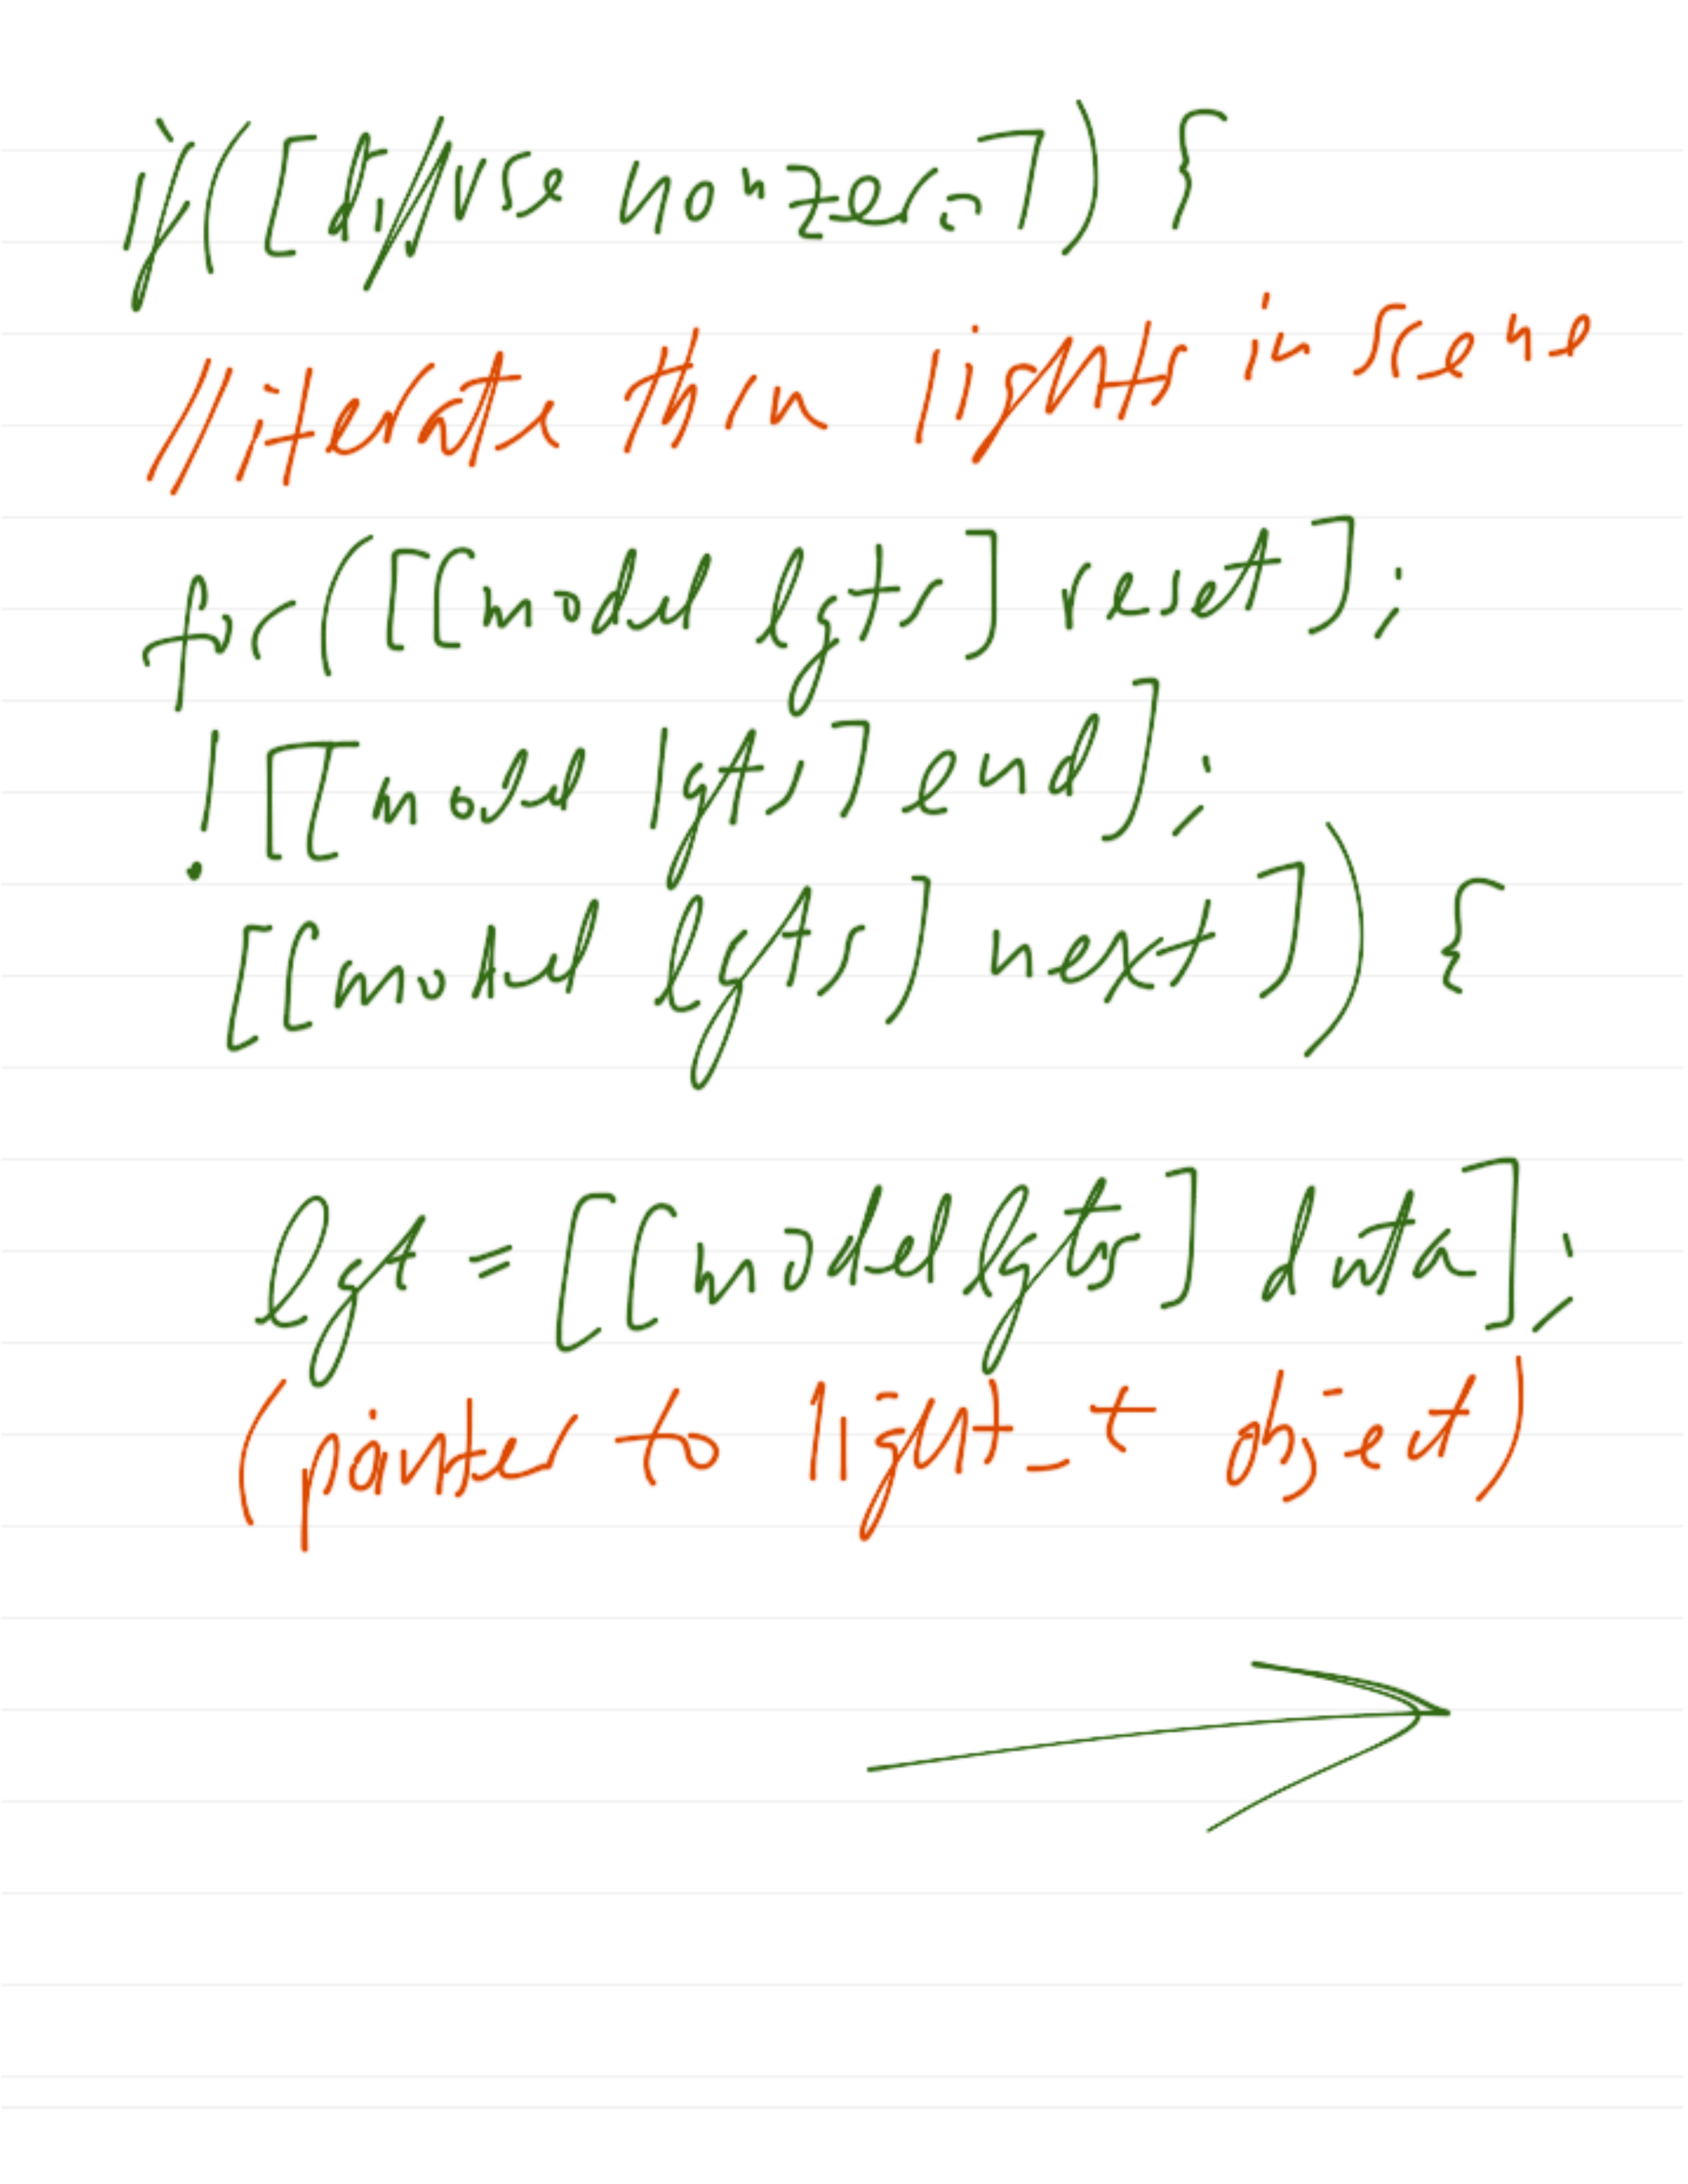 if([diffuse nonzero]) {
//iterate thru lights in scene
for([[model lgts] reset];
![[model lgts] end];
[[model lgts] next]) {
lgt = [[model lgts] data];
(pointer to light_t object)